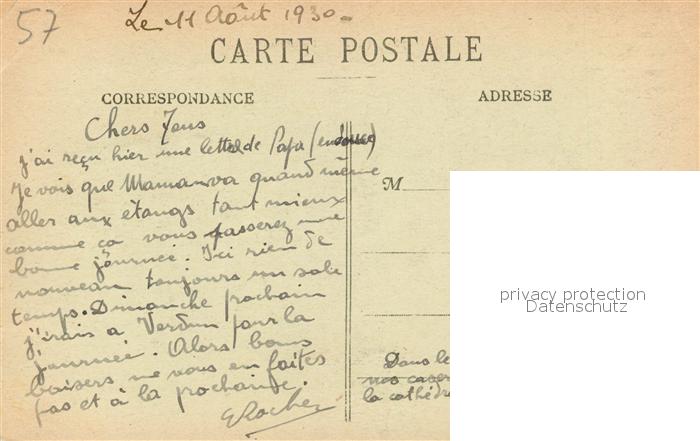 57
Le 11 Août 1930-
CARTE POSTALE
CORRESPONDANCE
ADRESSE
Chers Tous
j'ai reçu hier une lettre de Papa (
Je vois que Maman va quand même
aller aux étangs tant mieux
comme ça vous passerez une
bonne journée. Ici rien de
nouveau toujours un sale
temps. Dimanche prochain
j'irais a Verdun pour la
journée. Alors bons
baisers ne vous en faites
pas et à la prochaine.
M
privacy protection
Datenschutz
Dans le
nos caser
la cathédr